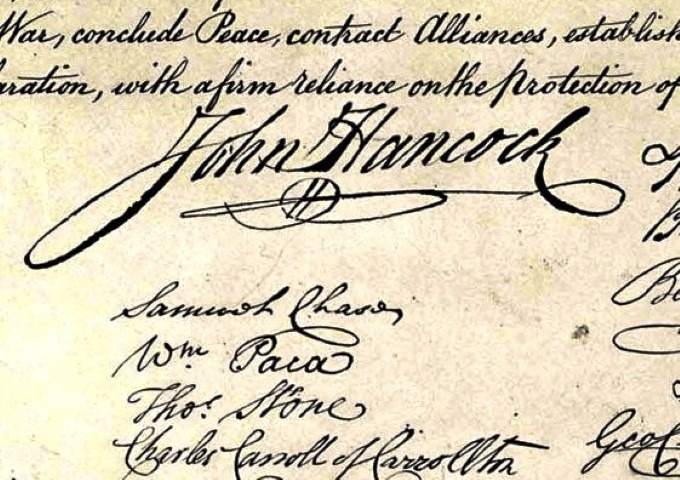 War, conclude Peace, contract Alliances, establish
aration, with a firm reliance on the Protection of
John Hancock
Samuel Chase
Wm. Paca
Thos. Stone
Charles Carroll of Carrollton
Geo